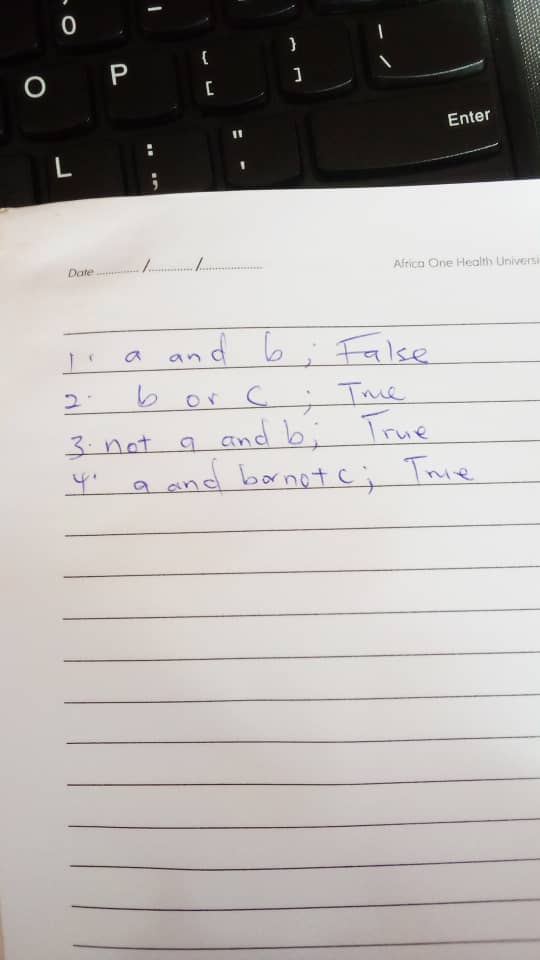 0
O P { [ } ] | \
Enter
L : ; " '
Date ............ / ............ / ................
Africa One Health Universi
1. a and b ; False
2. b or c ; True
3. not a and b; True
4. a and b or not c; True